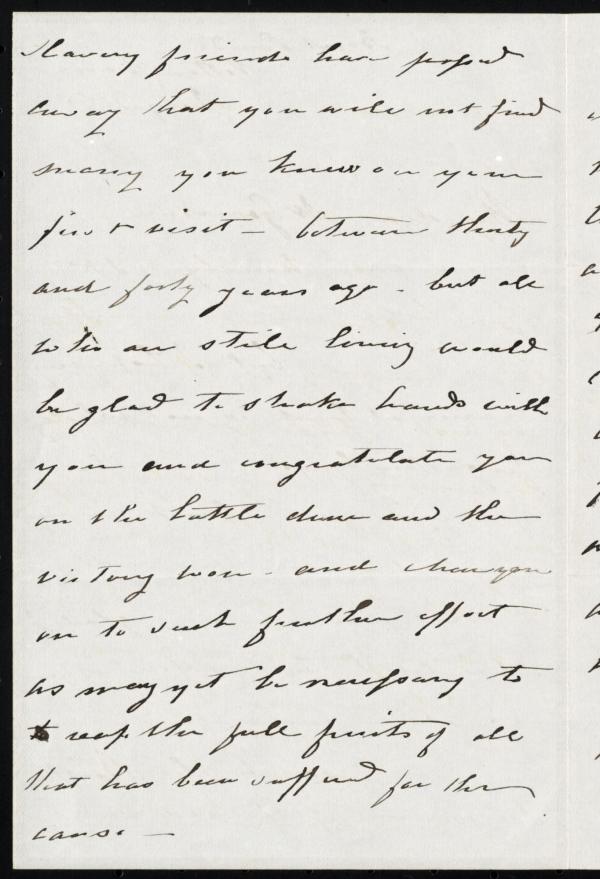 Slavery friends have passed
away that you will not find
many you knew on your
first visit - between thirty
and forty years ago - but all
who are still living would
be glad to shake hands with
you and congratulate you
on the battle done and the
victory won - and cheer you
on to such further effort
as may yet be necessary to
reap the full fruits of all
that has been suffered for the
cause -